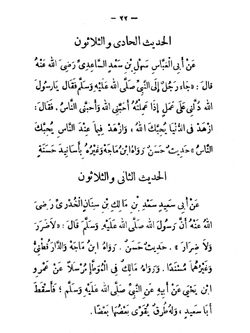 — ٢٢ —
الحديث الحادى والثلاثون
عَنْ أَبِي الْعَبَّاسِ سَهْلِ بْنِ سَعْدٍ السَّاعِدِىِّ رَضِىَ اللهُ عَنْهُ
قَالَ : « جَاءَ رَجُلٌ إِلَى النَّبِىِّ صَلَّى اللهُ عَلَيْهِ وَسَلَّمَ فَقَالَ يَا رَسُولَ
اللهِ دُلَّنِى عَلَى عَمَلٍ إِذَا عَمِلْتُهُ أَحَبَّنِىَ اللهُ وَأَحَبَّنِى النَّاسُ ، فَقَالَ :
ازْهَدْ فِى الدُّنْيَا يُحِبُّكَ اللهُ ، وَازْهَدْ فِيمَا عِنْدَ النَّاسِ يُحِبُّكَ
النَّاسُ » حَدِيثٌ حَسَنٌ رَوَاهُ ابْنُ مَاجَهْ وَغَيْرُهُ بِأَسَانِيدَ حَسَنَةٍ
الحديث الثانى والثلاثون
عَنْ أَبِى سَعِيدٍ سَعْدِ بْنِ مَالِكِ بْنِ سِنَانٍ الْخُدْرِىِّ رَضِىَ
اللهُ عَنْهُ أَنَّ رَسُولَ اللهِ صَلَّى اللهُ عَلَيْهِ وَسَلَّمَ قَالَ : « لَاضَرَرَ
وَلَا ضِرَارَ » . حَدِيثٌ حَسَنٌ . رَوَاهُ ابْنُ مَاجَهْ وَالدَّارَقُطْنِىُّ
وَغَيْرُهُمَا مُسْنَدًا . وَرَوَاهُ مَالِكٌ فِى الْمُوَطَّإِ مُرْسَلًا عَنْ عَمْرِو
ابْنِ يَحْيَى عَنْ أَبِيهِ عَنِ النَّبِىِّ صَلَّى اللهُ عَلَيْهِ وَسَلَّمَ ؛ فَأَسْقَطَ
أَبَا سَعِيدٍ ، وَلَهُ طُرُقٌ يُقَوِّى بَعْضُهَا بَعْضًا .